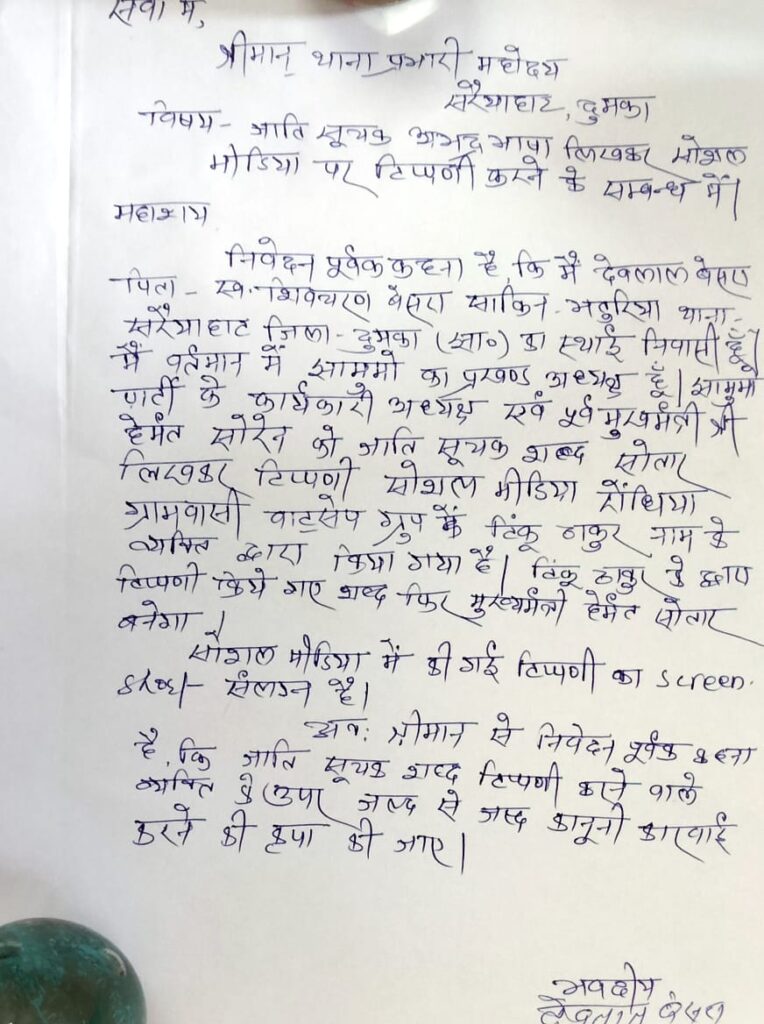 सेवा में,
श्रीमान् थाना प्रभारी महोदय
सरैयाहाट, दुमका
विषय- जाति सूचक अभद्र भाषा लिखकर सोशल
मीडिया पर टिप्पणी करने के सम्बन्ध में।
महाशय
निवेदन पूर्वक कहना है, कि मैं देवलाल बेसरा
पिता - स्व. शिवचरण बेसरा साकिन- थाना-
सरैयाहाट जिला- दुमका (झा०) का स्थाई निवासी हूँ।
मैं वर्तमान में झामुमो का प्रखण्ड अध्यक्ष हूँ। झामुमो
पार्टी के कार्यकारी अध्यक्ष एवं पूर्व मुख्यमंत्री श्री
हेमंत सोरेन को जाति सूचक शब्द सोतार
लिखकर टिप्पणी सोशल मीडिया
ग्रामवासी वाट्सेप ग्रुप में टिंकू ठाकुर नाम के
व्यक्ति द्वारा किया गया है। टिंकू ठाकुर के द्वारा
टिप्पणी किये गए शब्द फिर मुख्यमंत्री हेमंत सोतार
बनेगा।
सोशल मीडिया में की गई टिप्पणी का screen
shot संलग्न है।
अतः श्रीमान से निवेदन पूर्वक कहना
है, कि जाति सूचक शब्द टिप्पणी करने वाले
व्यक्ति के उपर जल्द से जल्द कानूनी कारवाई
करने की कृपा की जाए।
भवदीय
देवलाल बेसरा